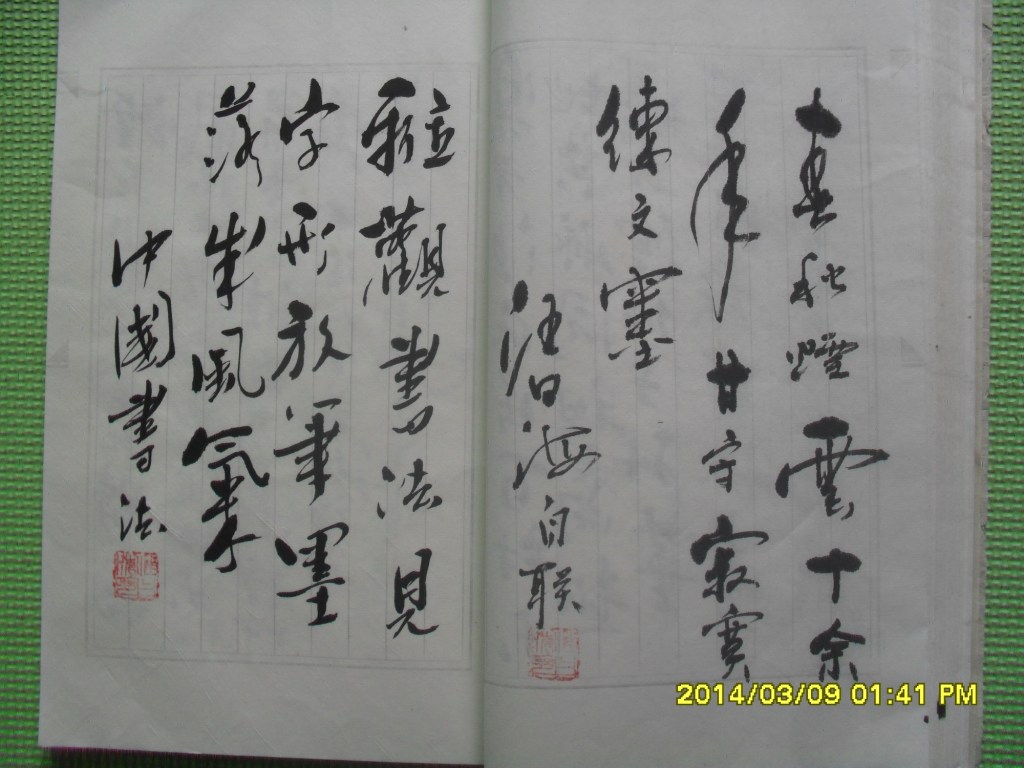 春秋煙雲十余
年甘守寂寞
練文墨
海自联
觀書法見
字形放筆墨
落成風氣
中國書法
2014/03/09 01:41 PM